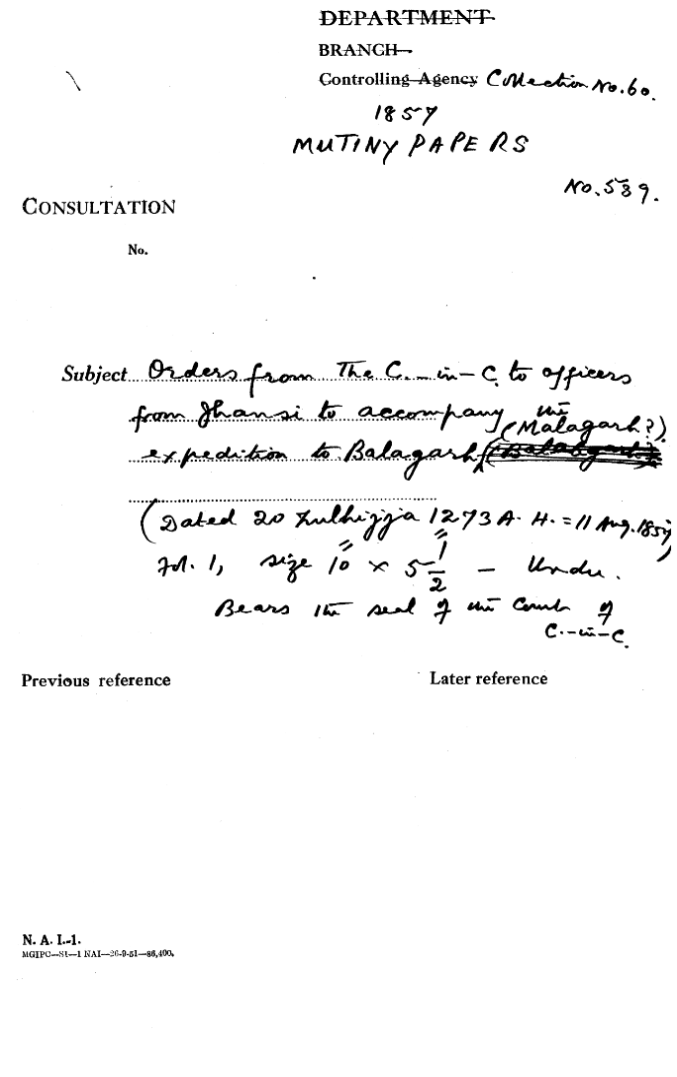 DEPARTMENT
BRANCH
Controlling Agency Collection No. 60.
1857
MUTINY PAPERS
No. 539.
CONSULTATION
No.
Subject Orders from The C.-in-C. to officers
from Jhansi to accompany the
expedition to Balagarh (Malagarh?).
(Dated 20 Zulhijja 1273 A.H. = 11 Aug. 1857
Fol. 1, size 10" x 5 1/2" - Urdu.
Bears the seal of the Court of
C.-in-C.
Previous reference Later reference
N. A. I.-1.
MGIPC—S1—1 NAI—26-9-51—86,400.